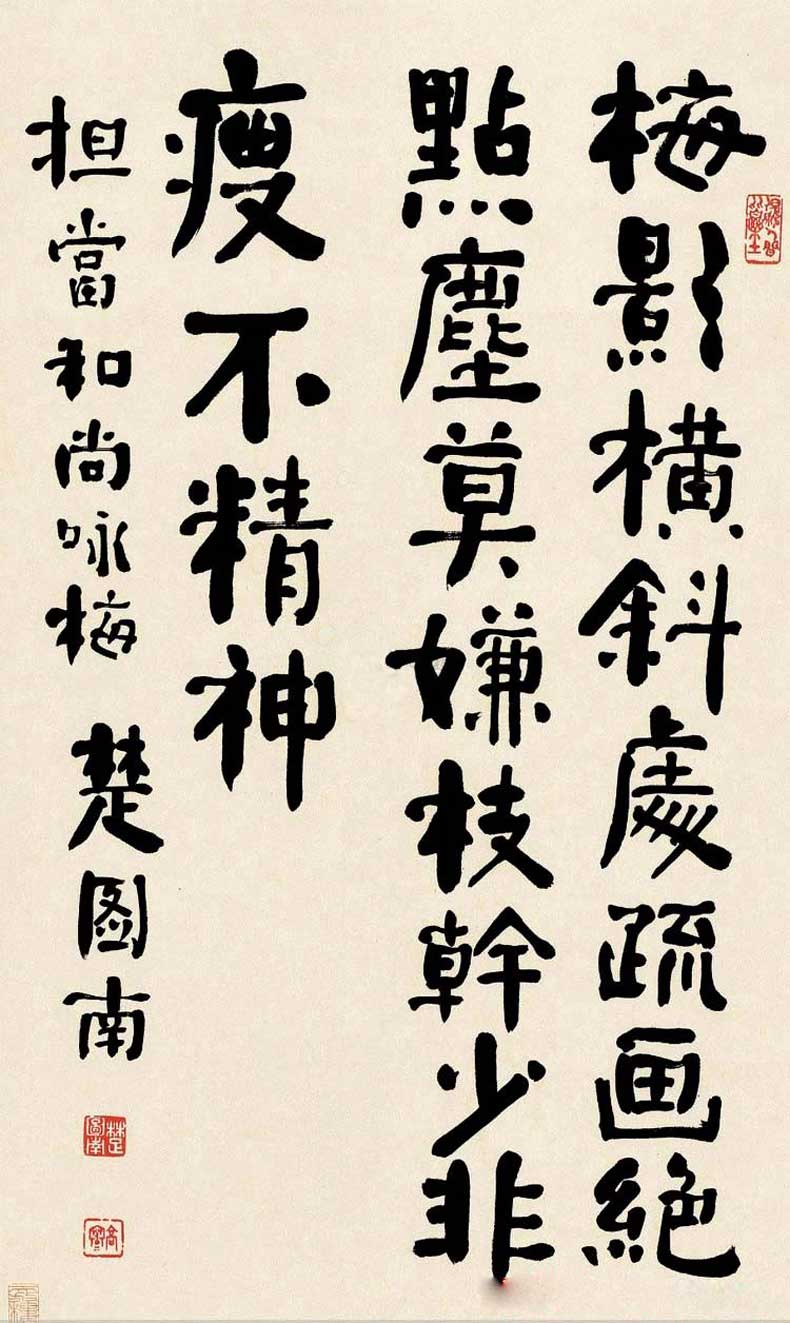 梅影橫斜處疏画絕
點塵莫嫌枝幹少非
瘦不精神
担當和尚咏梅 楚图南
楚圖南